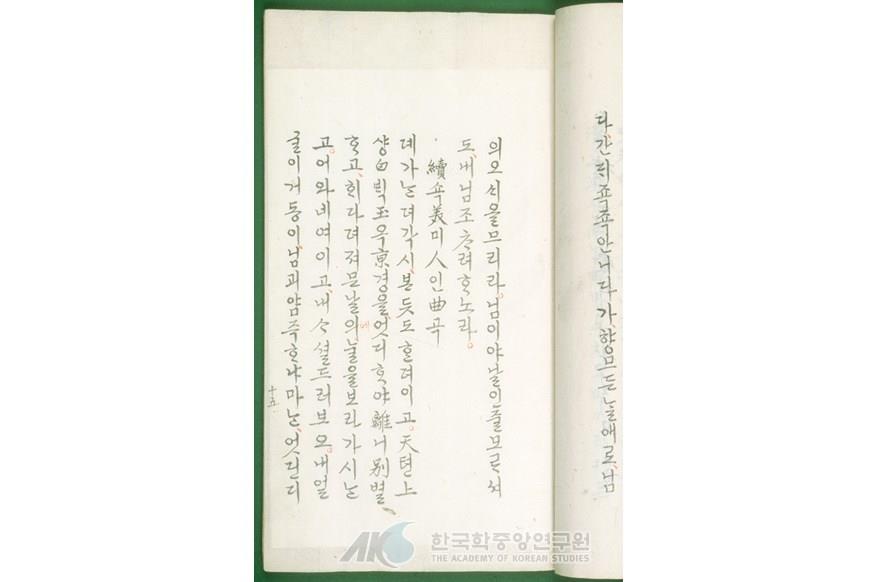 다간ᄃᆡ죡죡안니다가향므든ᄂᆞᆯ애로님
의오ᄉᆡ올므리라님이야날인줄모ᄅᆞ셔
도내님조ᄎᆞ려ᄒᆞ노라
續쇽美미人인曲곡
뎨가ᄂᆞᆫ뎌각시본듯도ᄒᆞᆫ뎌이고天텬上
샹白ᄇᆡᆨ玉옥京경을엇디ᄒᆞ야離니別별
ᄒᆞ고ᄒᆡ다뎌져믄날의눌을보라가시ᄂᆞᆫ
고어와네여이고내ᄉᆞ셜드러보오내얼
굴이거동이님괴얌즉ᄒᆞ냐마ᄂᆞᆫ엇딘디
十五
AKS 한국학중앙연구원
THE ACADEMY OF KOREAN STUDIES